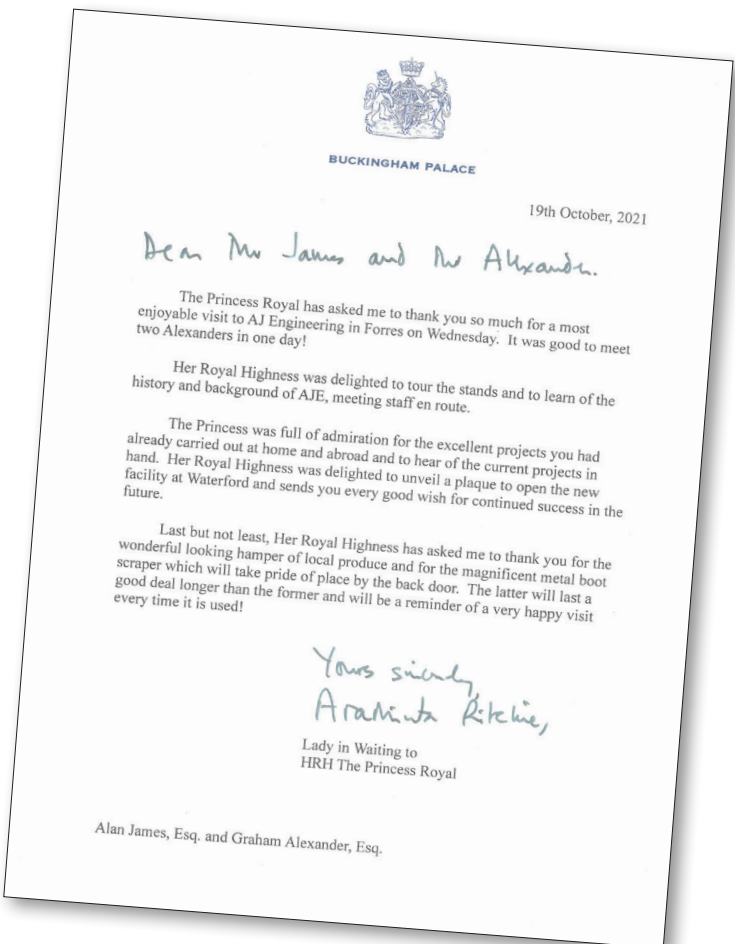 BUCKINGHAM PALACE
19th October, 2021
Dear Mr James and Mr Alexander.
The Princess Royal has asked me to thank you so much for a most
enjoyable visit to AJ Engineering in Forres on Wednesday. It was good to meet
two Alexanders in one day!
Her Royal Highness was delighted to tour the stands and to learn of the
history and background of AJE, meeting staff en route.
The Princess was full of admiration for the excellent projects you had
already carried out at home and abroad and to hear of the current projects in
hand. Her Royal Highness was delighted to unveil a plaque to open the new
facility at Waterford and sends you every good wish for continued success in the
future.
Last but not least, Her Royal Highness has asked me to thank you for the
wonderful looking hamper of local produce and for the magnificent metal boot
scraper which will take pride of place by the back door. The latter will last a
good deal longer than the former and will be a reminder of a very happy visit
every time it is used!
Yours sincerely,
Araminta Ritchie,
Lady in Waiting to
HRH The Princess Royal
Alan James, Esq. and Graham Alexander, Esq.